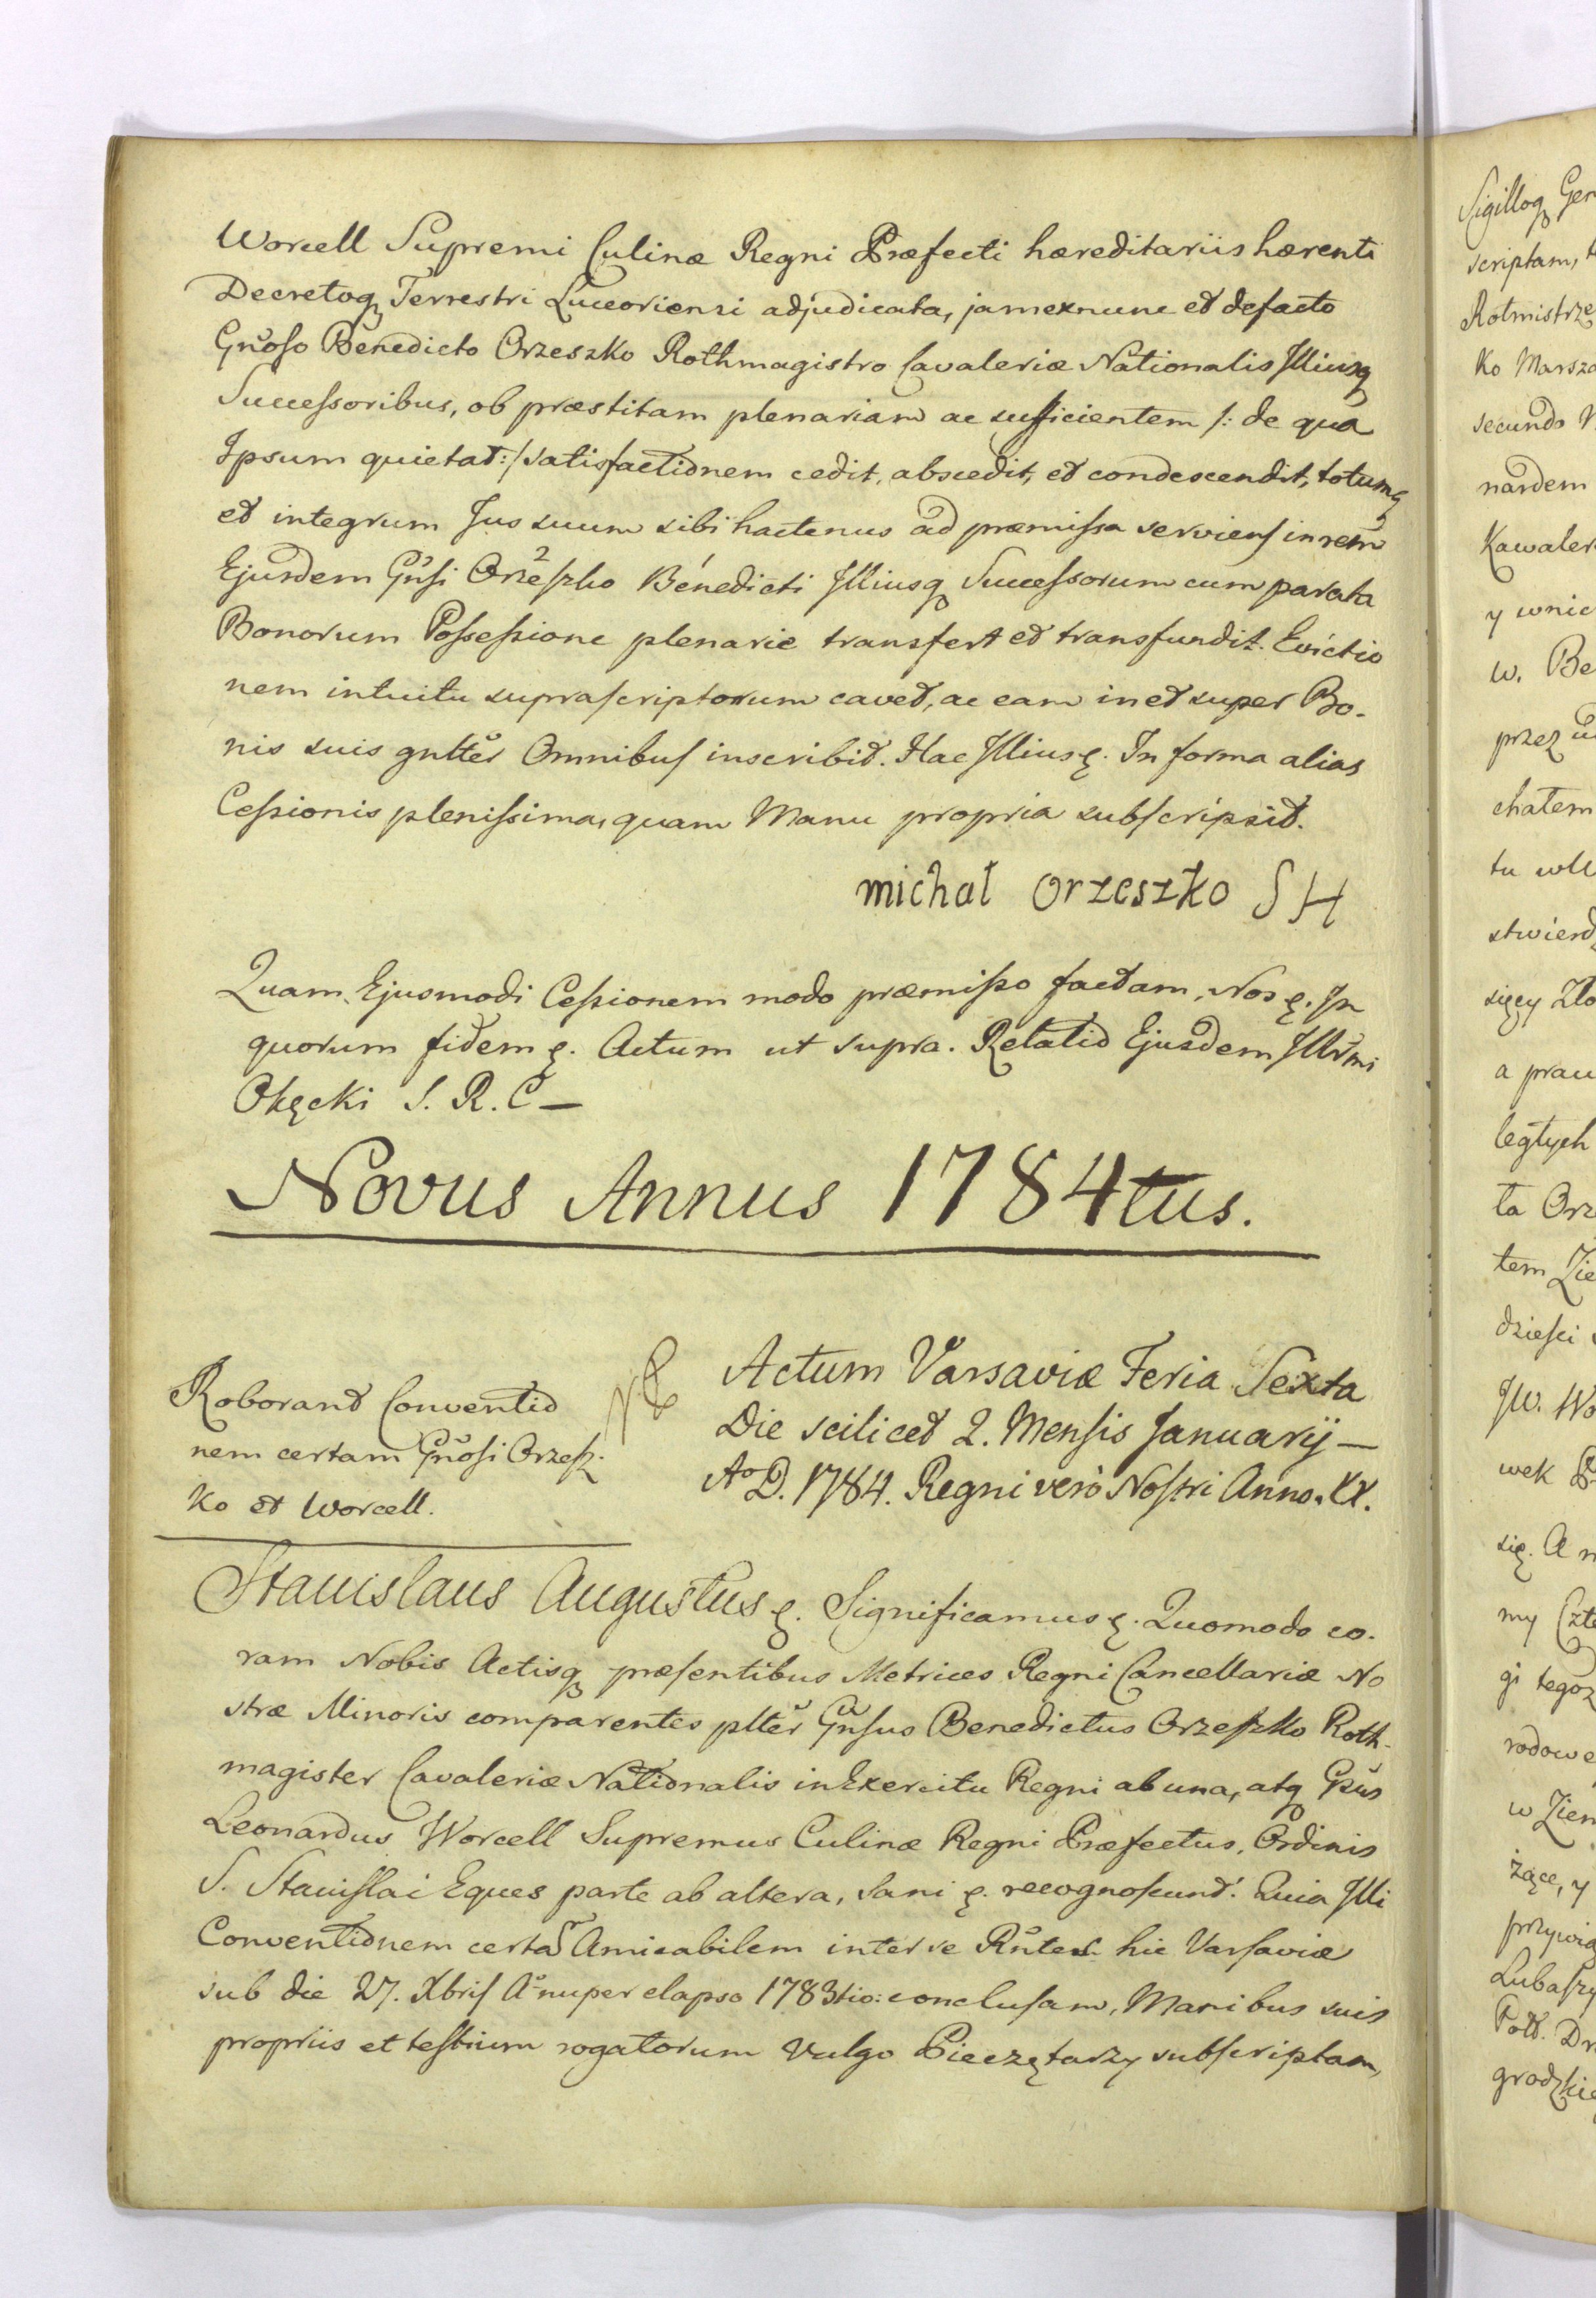 Worcell Supremi Culinæ Regni Præfecti hæreditariis hærenti
Decretoq Terrestri Luceoriensi adjudicata, jamexnunc et defacto
Gnoso Benedicto Orzeszko Rothmagistro Cavaleriæ Nationalis Illiusq
Successoribus, ob præstitam plenariam ac sufficientem /: de qua
Ipsum quietat :/ satisfactionem cedit, abscedit, et condescendit, totumq
et integrum Jus suum sibi hactenus ad præmissa serviens in rem
Ejusdem Gnsi Orzeszko Benedicti Illiusq Successorum cum parata
Bonorum Possessione plenarie transfert et transfundit. Evictio
nem intuitu suprascriptorum cavet, ac eam in et super Bo-
nis suis gnlter Omnibus inscribit. Hac Illius ę. In forma alias
Cessionis plenissima, quam Manu propria subscripsit.
michał orzeszko S H
Quam Ejusmodi Cessionem modo præmisso factam, Nos ę. In
quorum fidem ę. Actum ut supra. Relatio Ejusdem Illrmi
Okęcki S. R. C —
Novus Annus 1784tus.
Roborand Conventio
nem certam Gnosi Orzesz.
ko et Worcell.
Actum Varsaviæ Feria Sexta
Die scilicet 2. Mensis Januarij —
Ao D. 1784. Regni vero Nostri Anno. XX.
Stanislaus Augustus ę. Significamus ę. Quomodo co.
ram Nobis Actisq præsentibus Metrices Regni Cancellariæ No
stræ Minoris comparentes plter Gnsus Benedictus Orzeszko Roth-
magister Cavaleriæ Nationalis in Exercitu Regni ab una, atq Gnus
Leonardus Worcell Supremus Culinæ Regni Præfectus, Ordinis
S. Stanislai Eques parte ab altera, Sani ę. recognoscund. Quia Illi
Conventionem certa Amicabilem inter se Rntes hic Varsaviæ
sub die 27. Xbris Ao nuper elapso 1783tio: conclusam, Manibus suis
propriis et testium rogatorum Vulgo Pieczętarzy subscriptam,
Sigilloq Ger
scriptam,
Rotmistrze
ko Marsza
secundo
nardem
Kawaler
y wnie
w. Be
przez
chatem
tu
stwierdz
sięcy Zło
a praw
legtych
ta Orz
tem Zie
dzieści
JW. Wo
wek
się. A n
my Czte
gi tegoż
rodowe
w Ziem
żące, y
przywią
Lubaszy
Pott. Dr
grodzkie